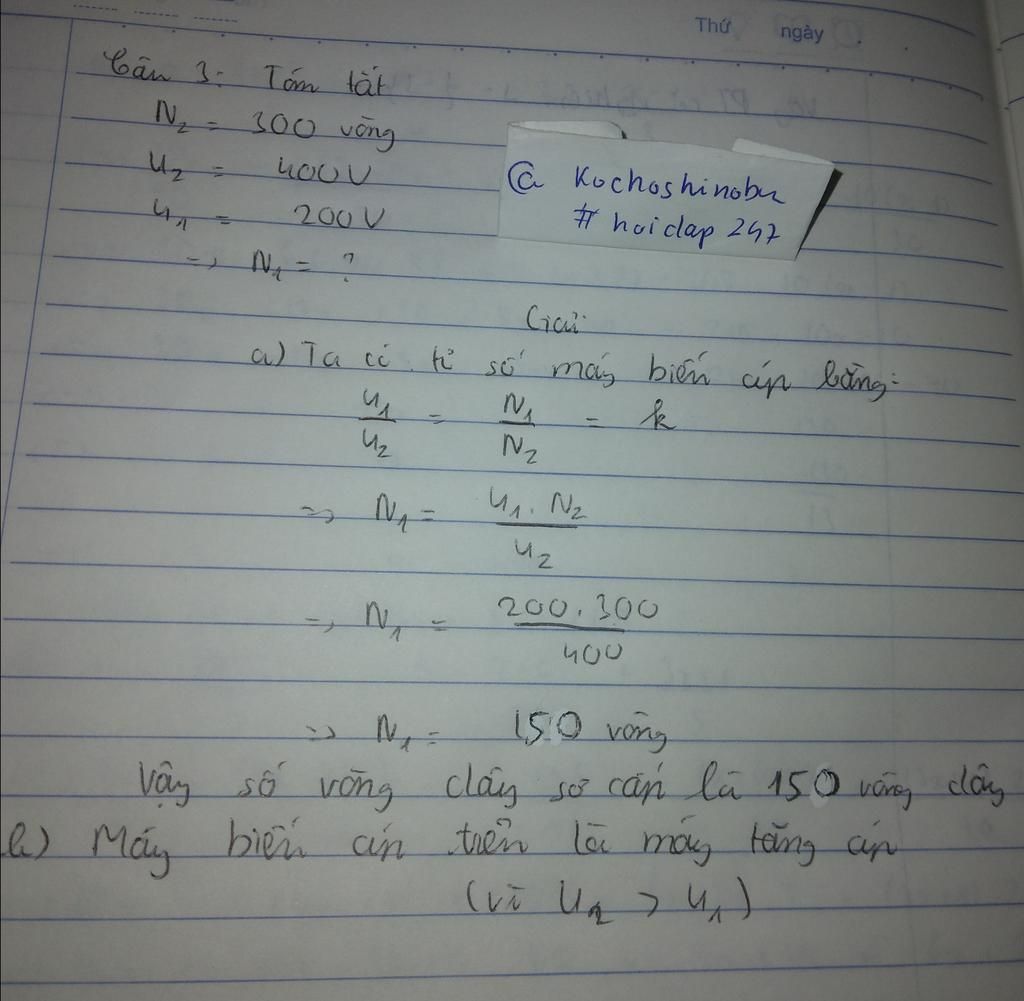 Thứ ngày
Câu 3: Tóm tắt
N₂ = 300 vòng
U₂ = 400V
U₁ = 200V
=> N₁ = ?
@ Kochoshinobu
# hoidap 247
Giải
a) Ta có tỉ số máy biến áp bằng:
U₁/U₂ = N₁/N₂ = k
=> N₁ = U₁.N₂/U₂
=> N₁ = 200.300/400
=> N₁ = 150 vòng
Vậy số vòng dây sơ cấp là 150 vòng dây
b) Máy biến áp trên là máy tăng áp
(vì U₂ > U₁)